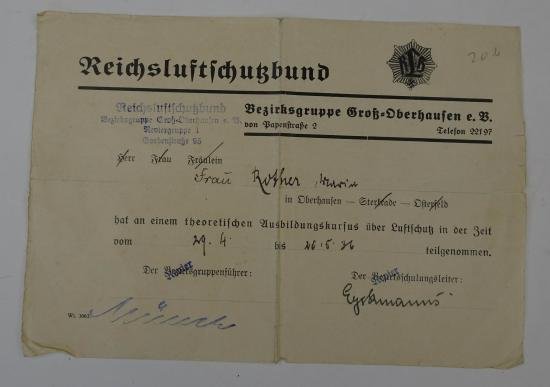 20 b
RLB
Reichsluftschutzbund
Reichsluftschutzbund
Bezirksgruppe Groß-Oberhausen e. V.
Reviergruppe 1
95
Bezirksgruppe Groß-Oberhausen e. V.
von Papenstraße 2 Telefon 22197
Herr Frau Fräulein
Frau Rother, Maria
in Oberhausen — Sterkrade — Osterfeld
hat an einem theoretischen Ausbildungskursus über Luftschutz in der Zeit
vom 29. 4. bis 26. 5. 36 teilgenommen.
Der Bezirksgruppenführer: Der Bezirksschulungsleiter:
Revier Revier